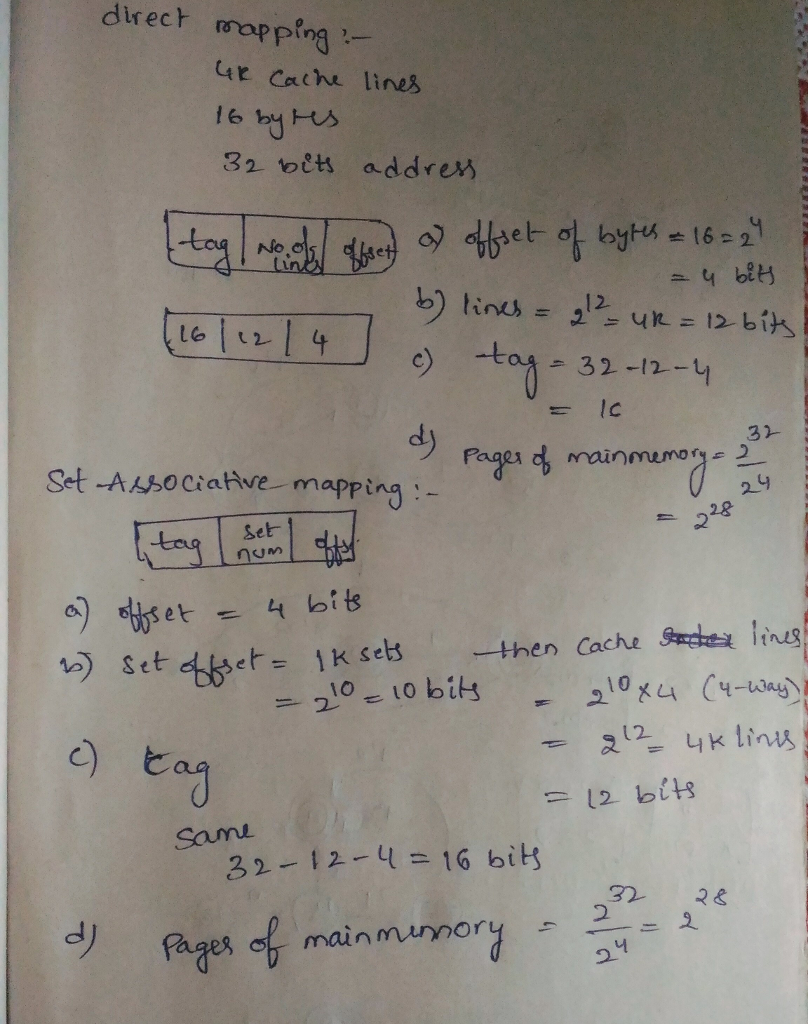 direct mapping :-
4K Cache lines
16 bytes
32 bits address
tag | No. of lines | offset
a) offset of bytes = 16 = 2^4
= 4 bits
b) lines = 2^12 = 4K = 12 bits
16 | 12 | 4
c) tag = 32 - 12 - 4
= 16
d) Pages of mainmemory = 2^32 / 2^4
= 2^28
Set Associative mapping :-
tag | Set num |
a) offset = 4 bits
b) Set offset = 1K sets
= 2^10 = 10 bits
then cache lines
= 2^10 x 4 (4-way)
= 2^12 = 4K lines
= 12 bits
c) tag
same
32 - 12 - 4 = 16 bits
d) Pages of mainmemory = 2^32 / 2^4 = 2^28